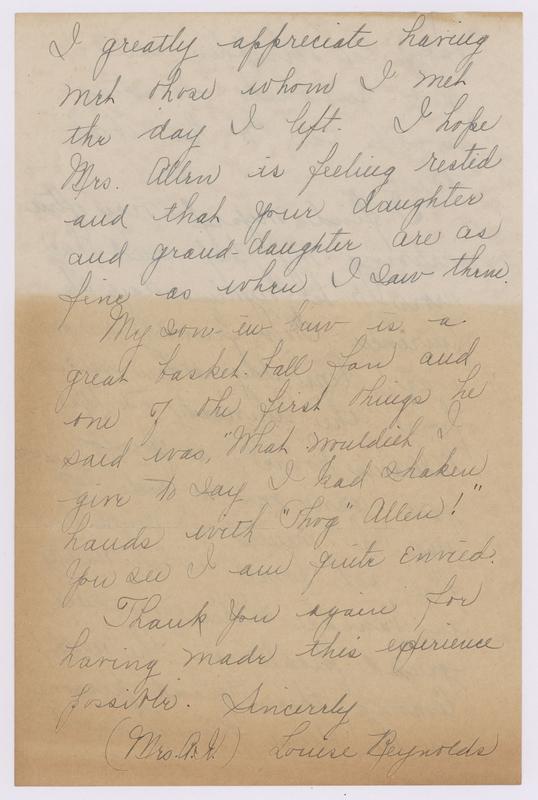 I greatly appreciate having
met those whom I met
the day I left. I hope
Mrs. Allen is feeling rested
and that your daughter
and grand-daughter are as
fine as when I saw them.
My son-in law is a
great basket-ball fan and
one of the first things he
said was, "What wouldn't I
give to say I had shaken
hands with "Phog" Allen!"
You see I am quite envied.
Thank you again for
having made this experience
possible. Sincerely
(Mrs. ) Louise Reynolds